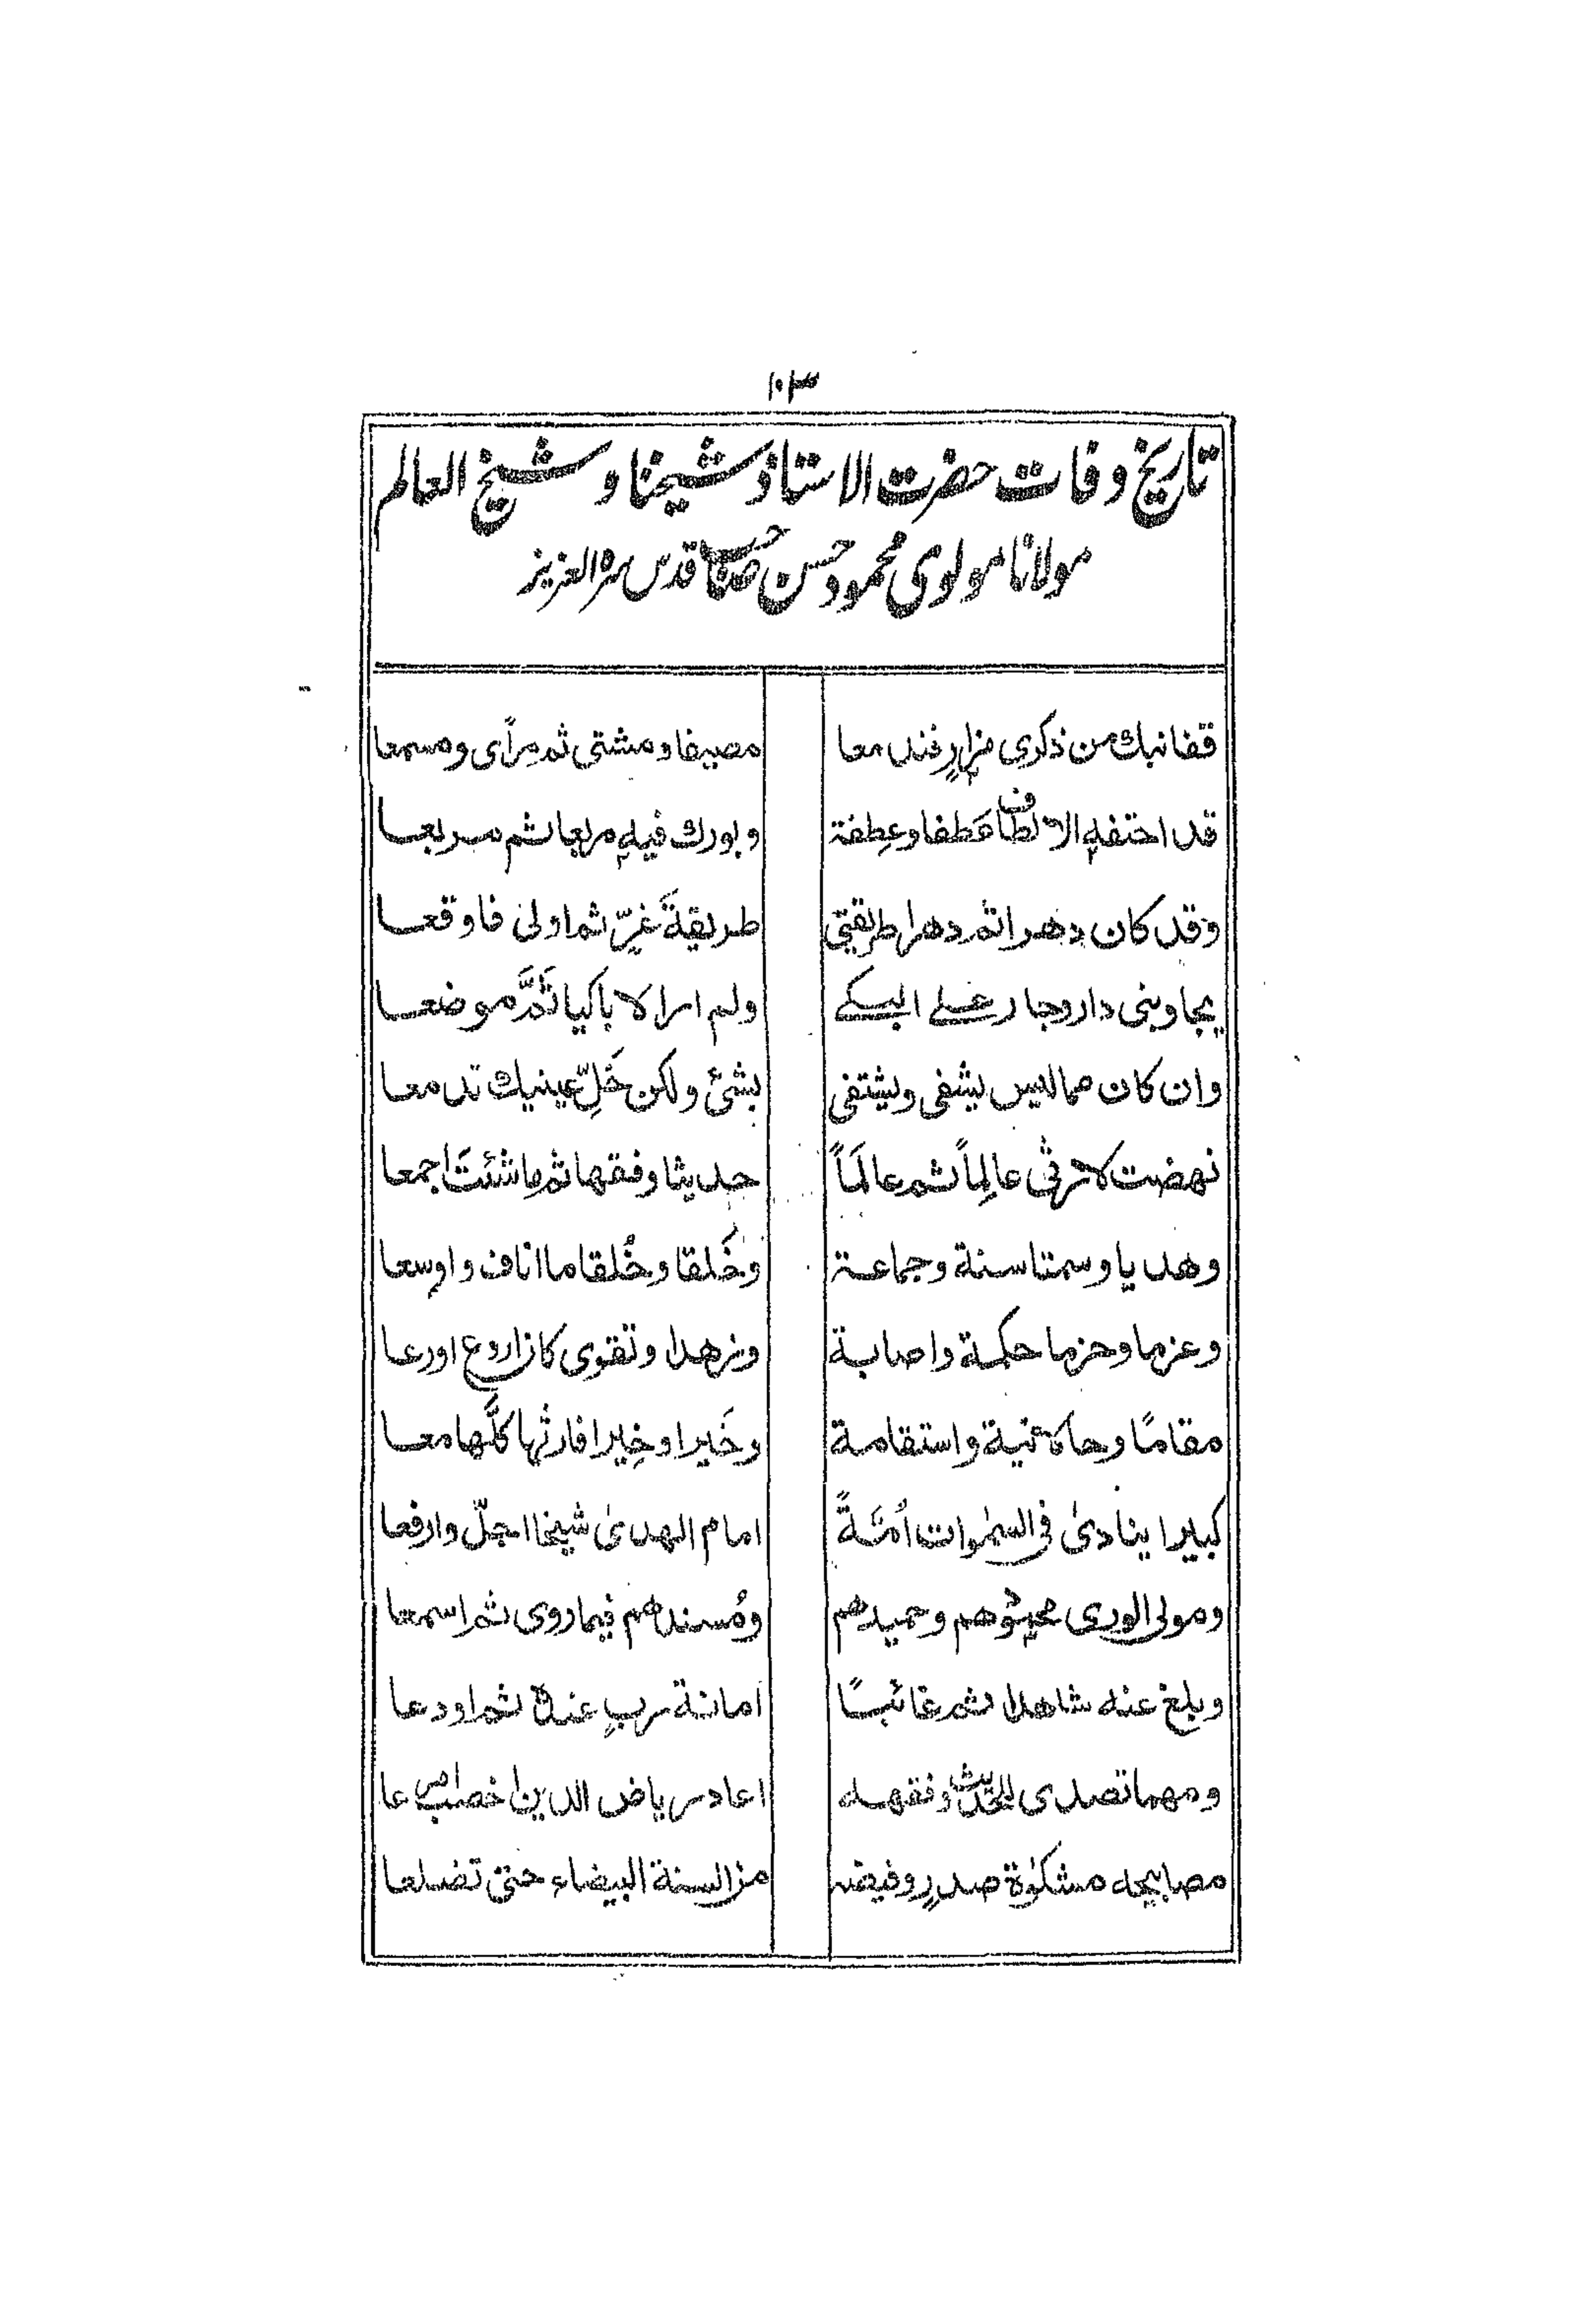 ۱۰۳
تاریخ وفات حضرت الاستاذ شیخنا و شیخ العالم
مولانا مولوی محمود حسن صاحب قدس سرہ العزیز
قفا نبك من ذكرى مزارٍ فندمعا مصيفا ومشتى ثم مرأًى ومسمعا
قد احتفهٖ الالطاف عَطفا وعِطفة وبورك فيهٖ مربعا ثم مربعا
وقد كان دهرا ثم دهرا طريقتي طريقةَ غِرٍّ ثم اولى فاوقعا
يجاوبنى دار وجار على البكى ولم ار الا باكيا ثَمَّ موضعا
وان كان مما ليس يشفى ويشتفى بشئ ولكن خَلِّ عينيك تدمعا
نهضت لارثى عالِماً ثم عالَماً حديثا وفقها ثم ما شئتَ اجمعا
وهديا وسمتا سنة وجماعة وخَلقا وخُلقا ما اناف واوسعا
وعزما وحزما حكمة واصابة وزهدا وتقوى كان اروع اورعا
مقامًا وحالا نية واستقامة وخَيرا وخِيرا فارثها كلَّها معا
كبيرا ينادىٰ فى السمٰوات اُمَّةً امام الهدىٰ شيخا اجلّ وارفعا
ومولى الورى محيىٖ وهم وحميدهم ومُسندهم فيما روى ثم اسمعا
وبلغ عنه شاهدا ثم غائبًا امانة ربٍ عنده ثم اودعا
ومهما تصدى للحديث وفقهه اعاد رياض الدين اخصب امرعا
مصابيحه مشكوٰة صدرٍ وفيضه من السنة البيضاء حتى تضلعا